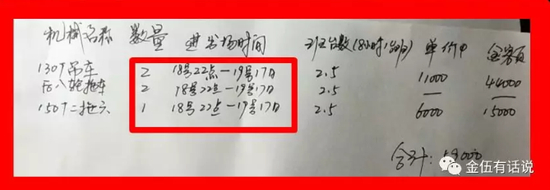 机械名称 数量 进出场时间 班台数(8小时1台班) 单价 金额
130T吊车 2 18号22点—19号17点 2.5 11000 44000
后八轮拖车 2 18号22点—19号17点 2.5 — —
150T二拖六 1 18号22点—19号17点 2.5 6000 15000
合计:
金伍有话说